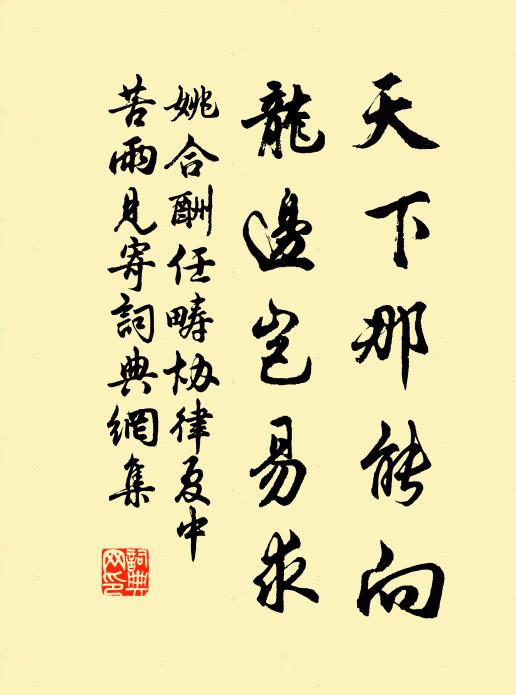 天下那能向
龍邊豈易求
姚合酬任疇协律夏中
苦雨見寄詞典網集
詞典网印